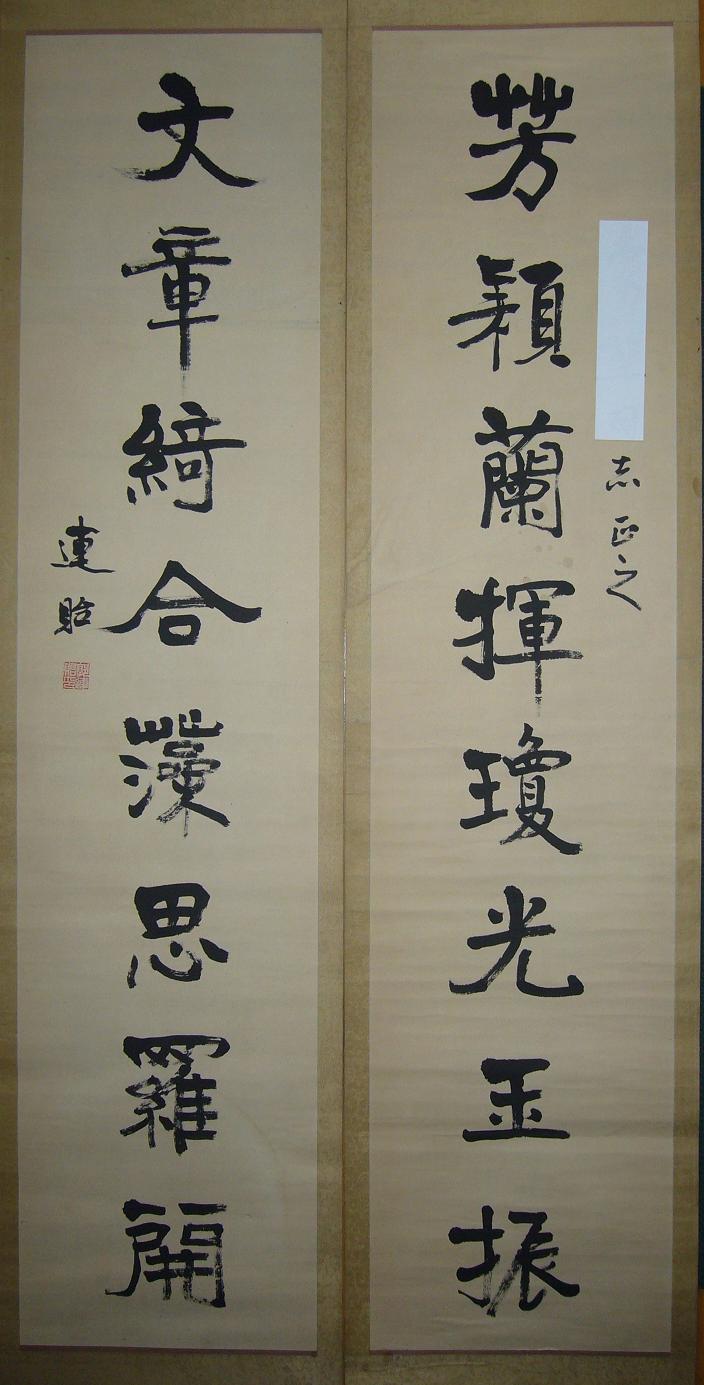 芳穎蘭揮瓊光玉振
志正之
文章綺合藻思羅開
連眙